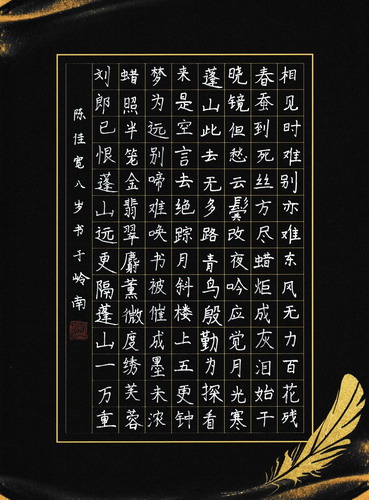 相见时难别亦难东风无力百花残
春蚕到死丝方尽蜡炬成灰泪始干
晓镜但愁云鬓改夜吟应觉月光寒
蓬山此去无多路青鸟殷勤为探看
来是空言去绝踪月斜楼上五更钟
梦为远别啼难唤书被催成墨未浓
蜡照半笼金翡翠麝薰微度绣芙蓉
刘郎已恨蓬山远更隔蓬山一万重
陈佳宽八岁书于岭南